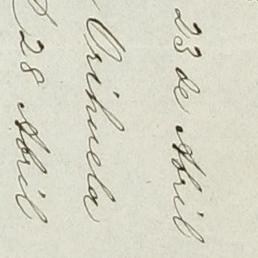 23 de Abril
Orihuela
28 Abril